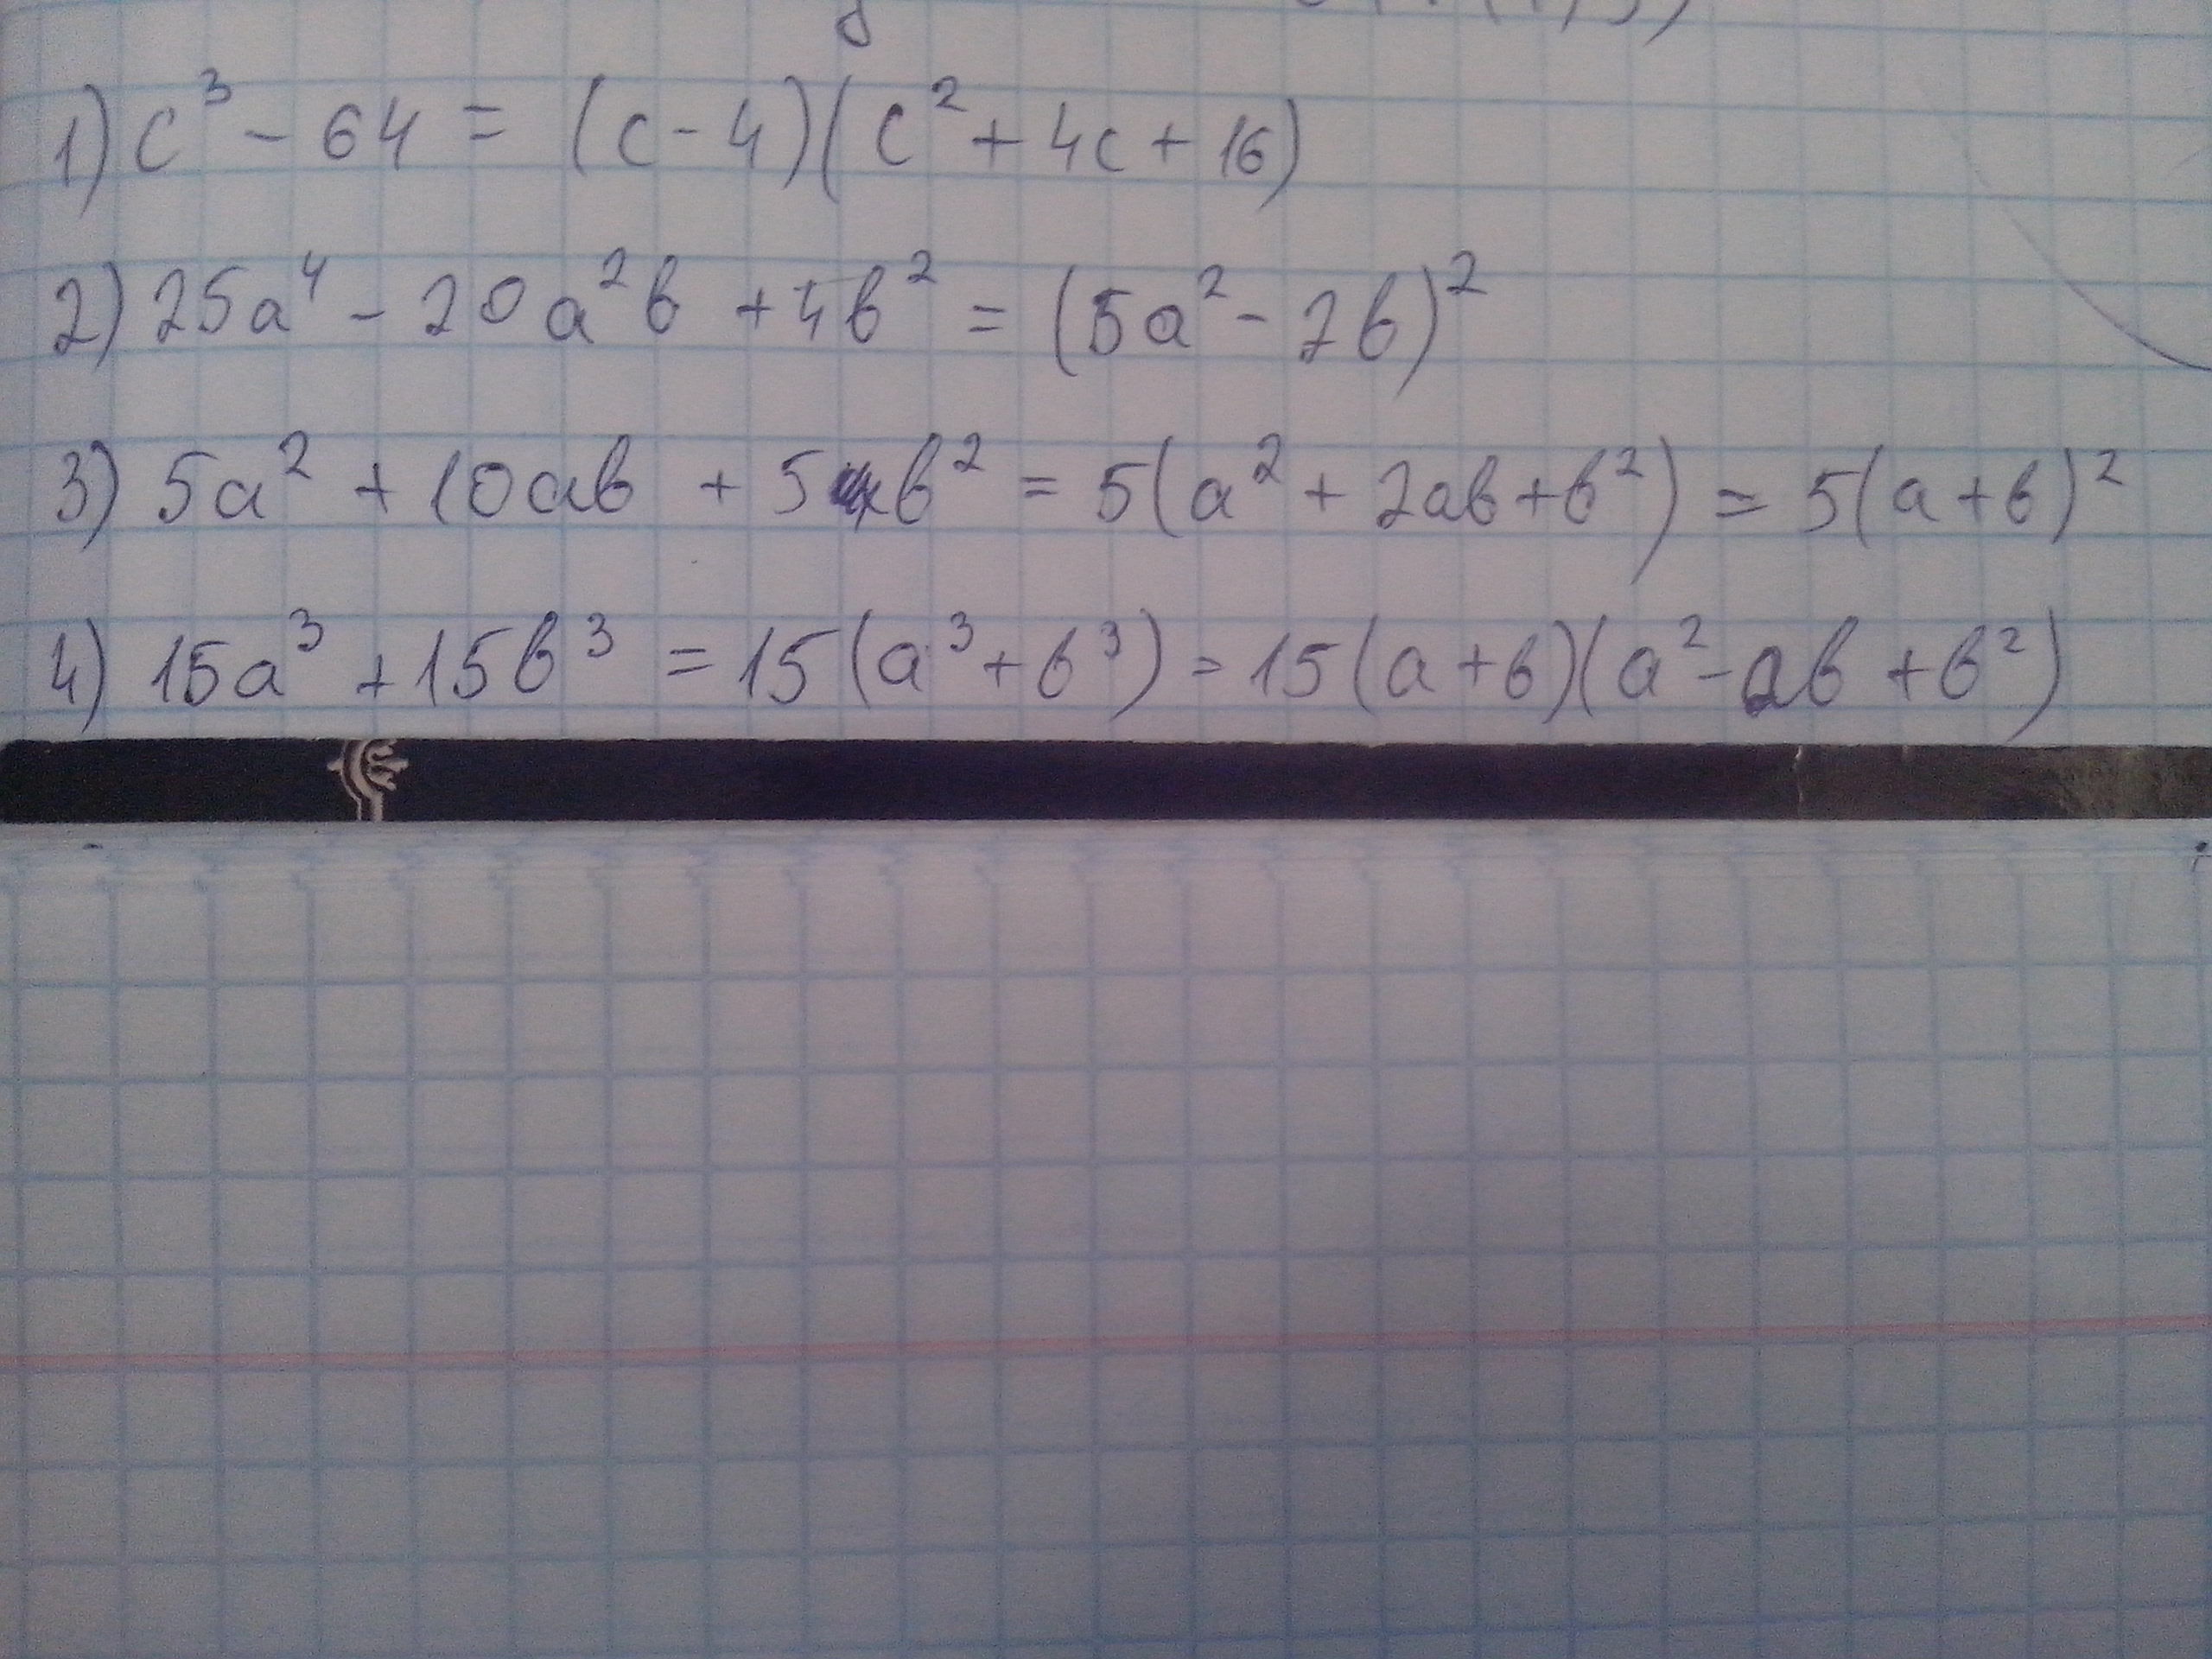 1) c³ - 64 = (c - 4)(c² + 4c + 16)
2) 25a⁴ - 20a²b + 4b² = (5a² - 2b)²
3) 5a² + 10ab + 5b² = 5(a² + 2ab + b²) = 5(a + b)²
4) 15a³ + 15b³ = 15(a³ + b³) = 15(a + b)(a² - ab + b²)